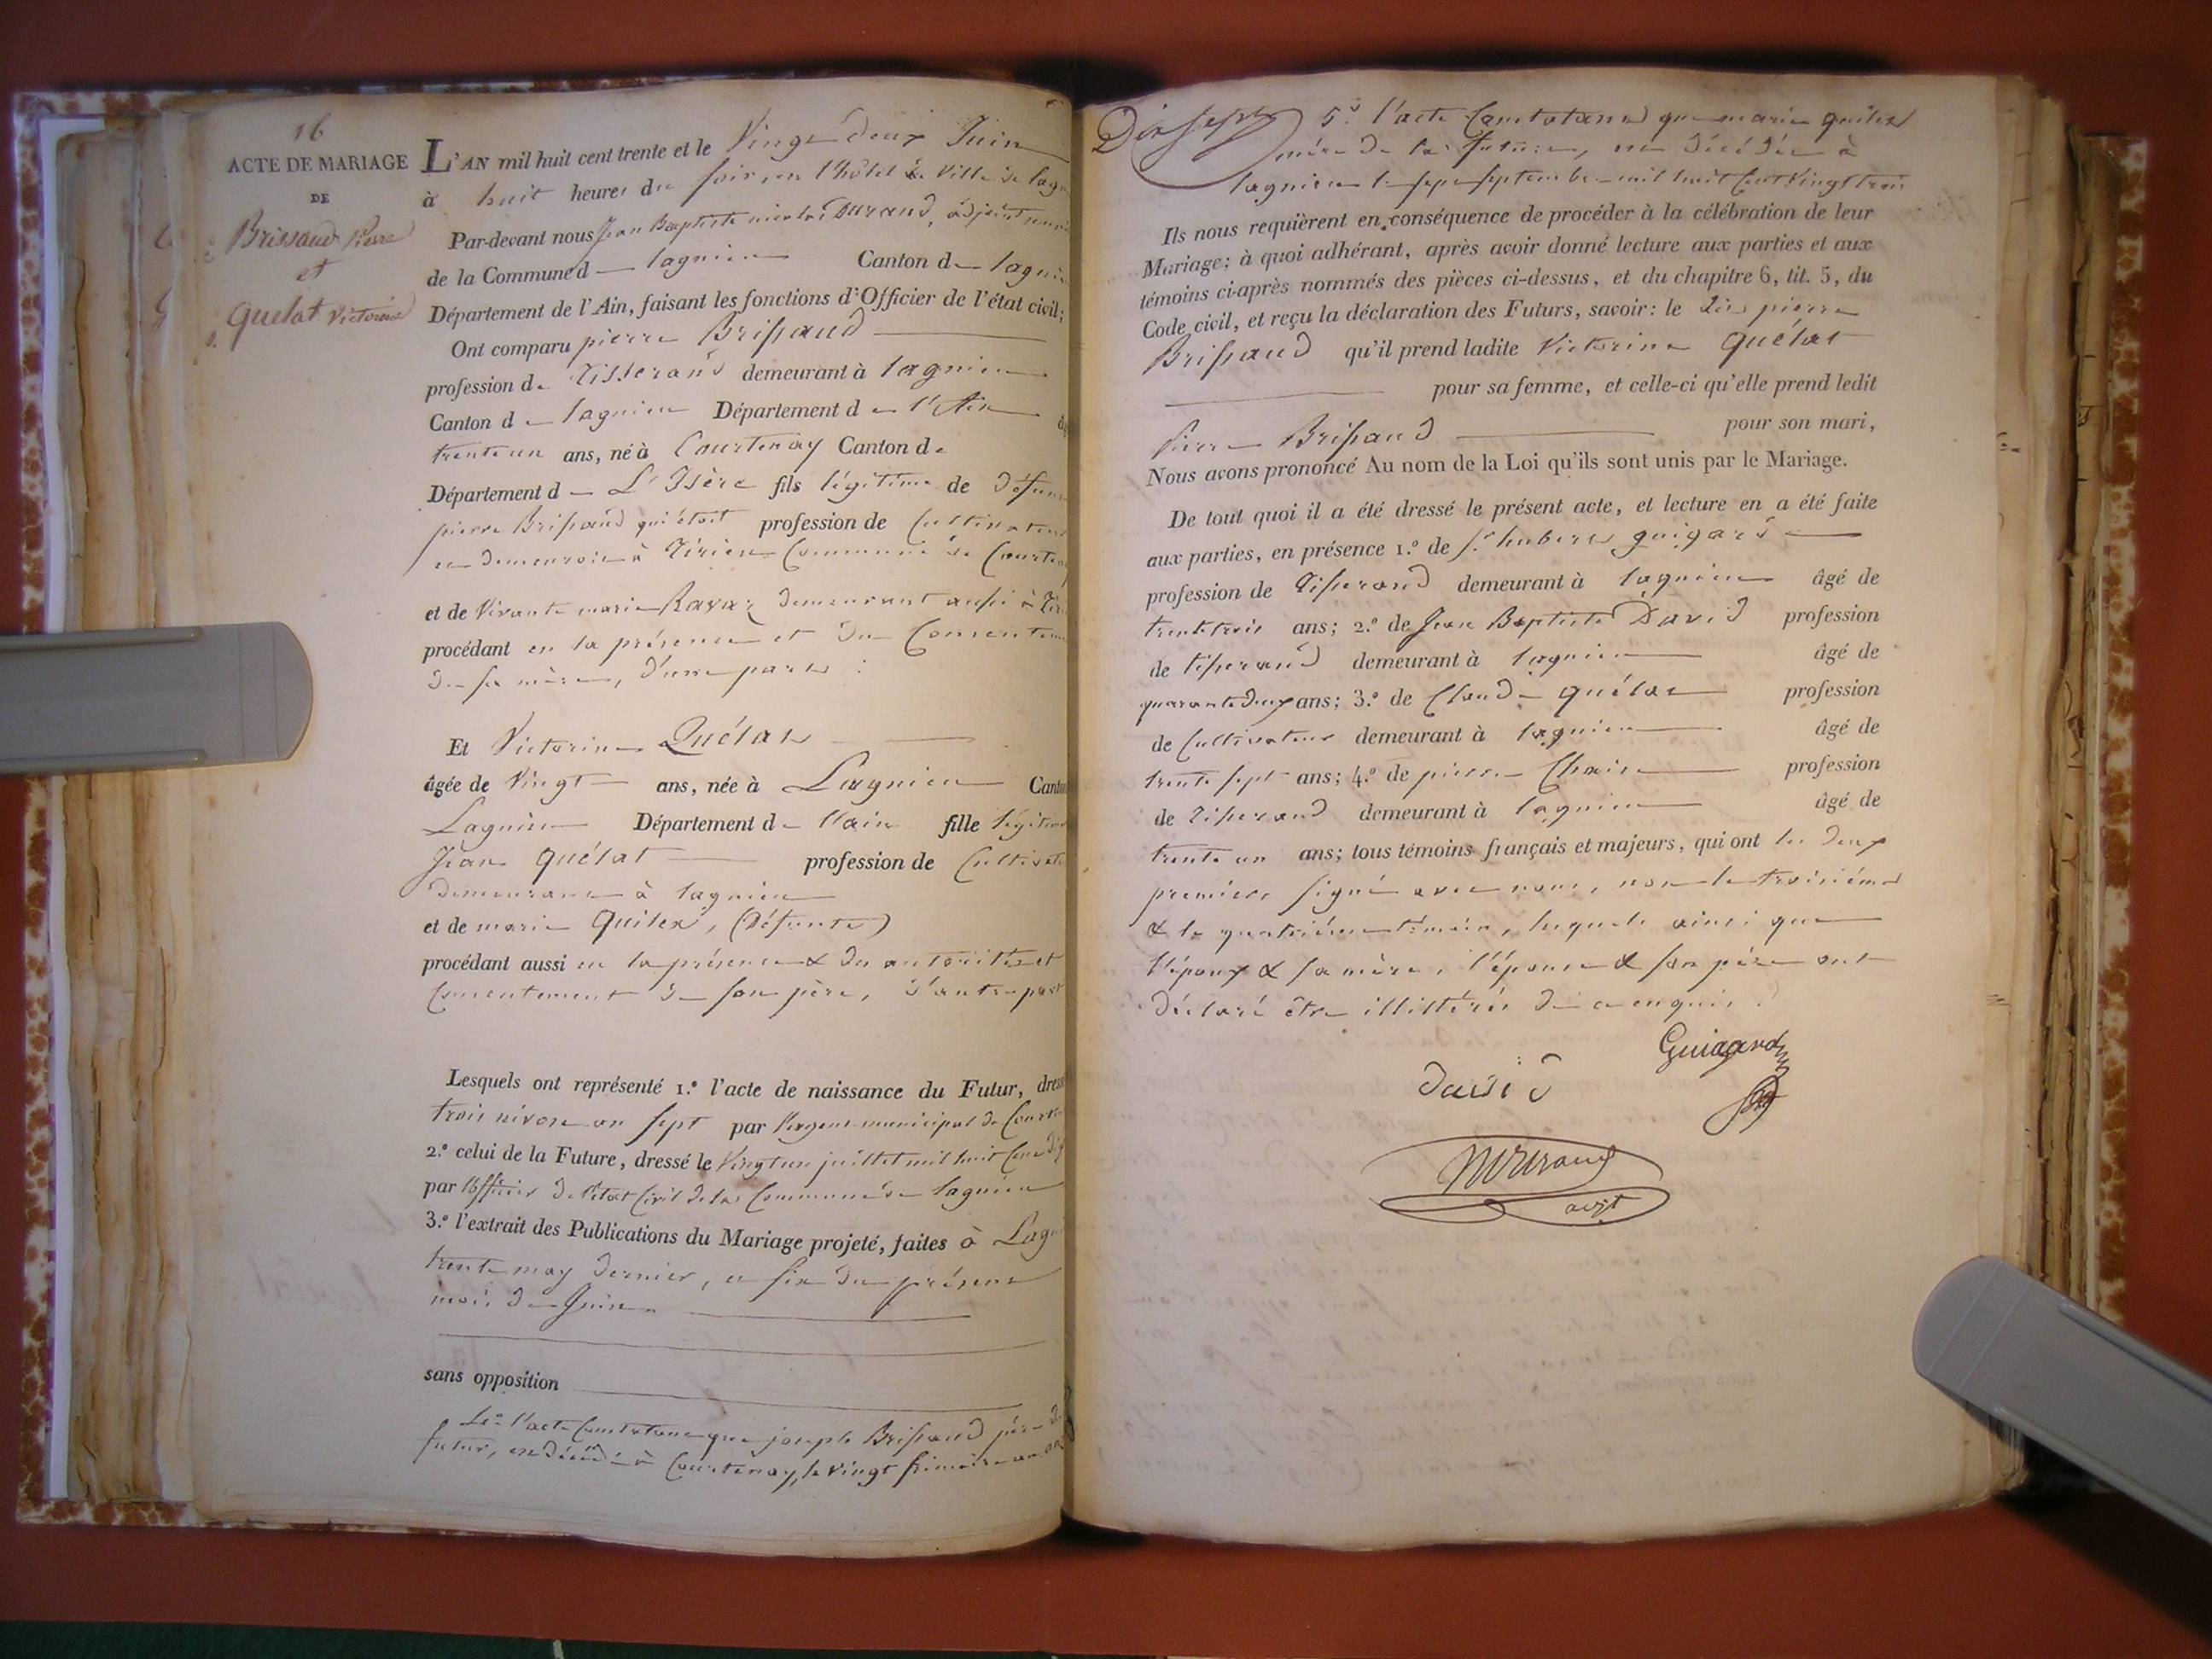 16
ACTE DE MARIAGE
DE
Brissaud Pierre
et
Quelat Victorine
L'AN mil huit cent trente et le Vingt deux Juin
à huit heures du soir, en l'hôtel de Ville de lagn
Par-devant nous Jean Baptiste nicolas Durand, adjoint
de la Commune d lagnieu Canton d lagni
Département de l'Ain, faisant les fonctions d'Officier de l'état civil;
Ont comparu pierre Brissaud
profession de Tisserand demeurant à lagnieu
Canton d lagnieu Département de l'Ain âg
trente un ans, né à Courtenay Canton de
Département d L'Isère fils légitime de défunt
pierre Brissaud qui était profession de Cultivateur
et demeuroit à Tirieu Commune de Courten
et de Vivante marie Ravaz demeurant aussi à Tiri
procédant en la présence et du Consentem
de sa mère, d'une part :
Et Victorine Quélat
âgée de Vingt ans, née à Lagnieu Canton
Lagnieu Département de l'ain fille légitime
Jean Quélat profession de Cultivate
demeurant à lagnieu
et de marie Quilex, (défunte)
procédant aussi en la présence & du autorité et
Consentement de son père, d'autre part
Lesquels ont représenté 1.º l'acte de naissance du Futur, dres
trois nivose an sept par l'agent municipal de Court
2.º celui de la Future, dressé le Vingt un juillet mil huit Cent dix
par l'officier de l'état Civil de la Commune de lagnieu
3.º l'extrait des Publications du Mariage projeté, faites à Lagn
trente may dernier, et six du présent
mois de Juin
sans opposition
4.º l'acte Constatant que joseph Brissaud père du
futur, est décédé à Courtenay, le vingt frimaire an
Dix sept
5º l'acte Constatant que marie quilex
mère de la future, est décédée à
lagnieu le sept septembre mil huit Cent Vingt trois
Ils nous requièrent en conséquence de procéder à la célébration de leur
Mariage; à quoi adhérant, après avoir donné lecture aux parties et aux
témoins ci-après nommés des pièces ci-dessus, et du chapitre 6, tit. 5, du
Code civil, et reçu la déclaration des Futurs, savoir: le dit pierre
Brissaud qu'il prend ladite Victorine Quélat
pour sa femme, et celle-ci qu'elle prend ledit
Pierre Brissaud pour son mari,
Nous avons prononcé Au nom de la Loi qu'ils sont unis par le Mariage.
De tout quoi il a été dressé le présent acte, et lecture en a été faite
aux parties, en présence 1.º de Sr. hubert guigard
profession de Tisserand demeurant à lagnieu âgé de
trente trois ans; 2.º de Jean Baptiste David profession
de tisserand demeurant à lagnieu âgé de
quarante deux ans; 3.º de Claude Quélat profession
de Cultivateur demeurant à lagnieu âgé de
trente sept ans; 4.º de pierre Chaix profession
de tisserand demeurant à lagnieu âgé de
trente un ans; tous témoins français et majeurs, qui ont les deux
premiers signé avec nous, non le troisième
& le quatrième témoin, lesquels ainsi que
l'époux & sa mère, l'épouse & son père ont
déclaré être illittérés de ce enquis.
Guigard
David
Durand
adjt